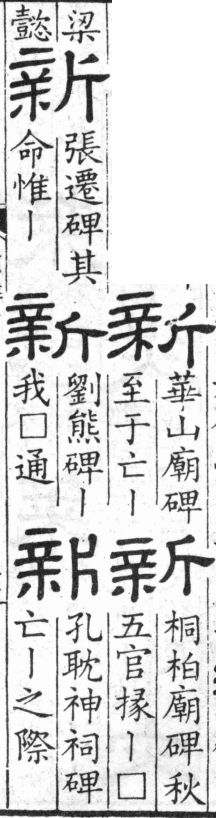 新
華山廟碑
至于亡丨
新
桐柏廟碑秋
五官掾丨□
梁
懿
新
張遷碑其
命惟丨
新
劉熊碑丨
我□通
新
孔耽神祠碑
亡丨之際